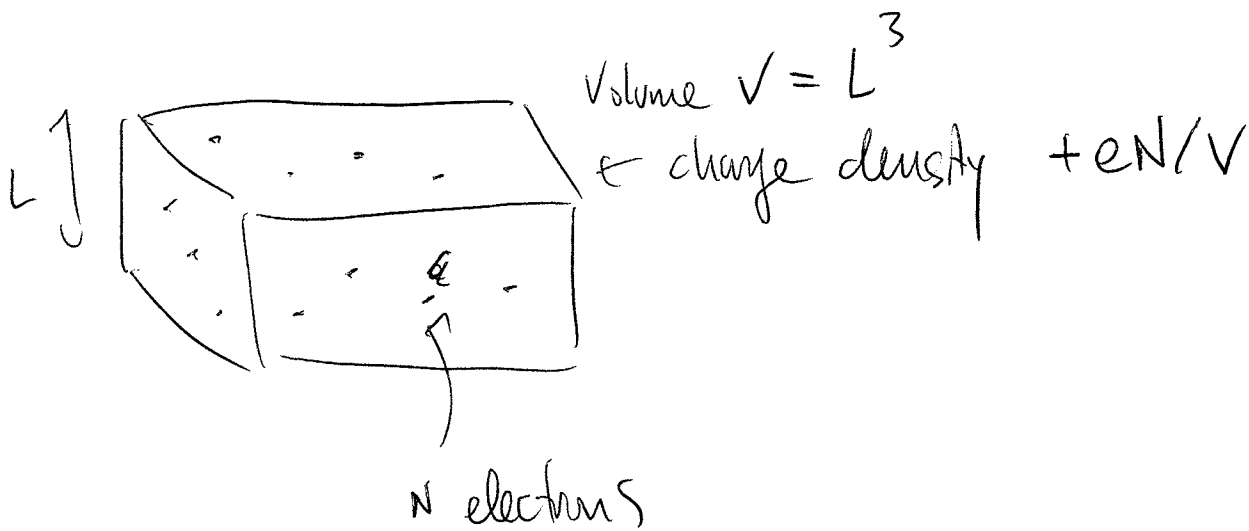 Volume V = L³
L
← charge density +eN/V
N electrons